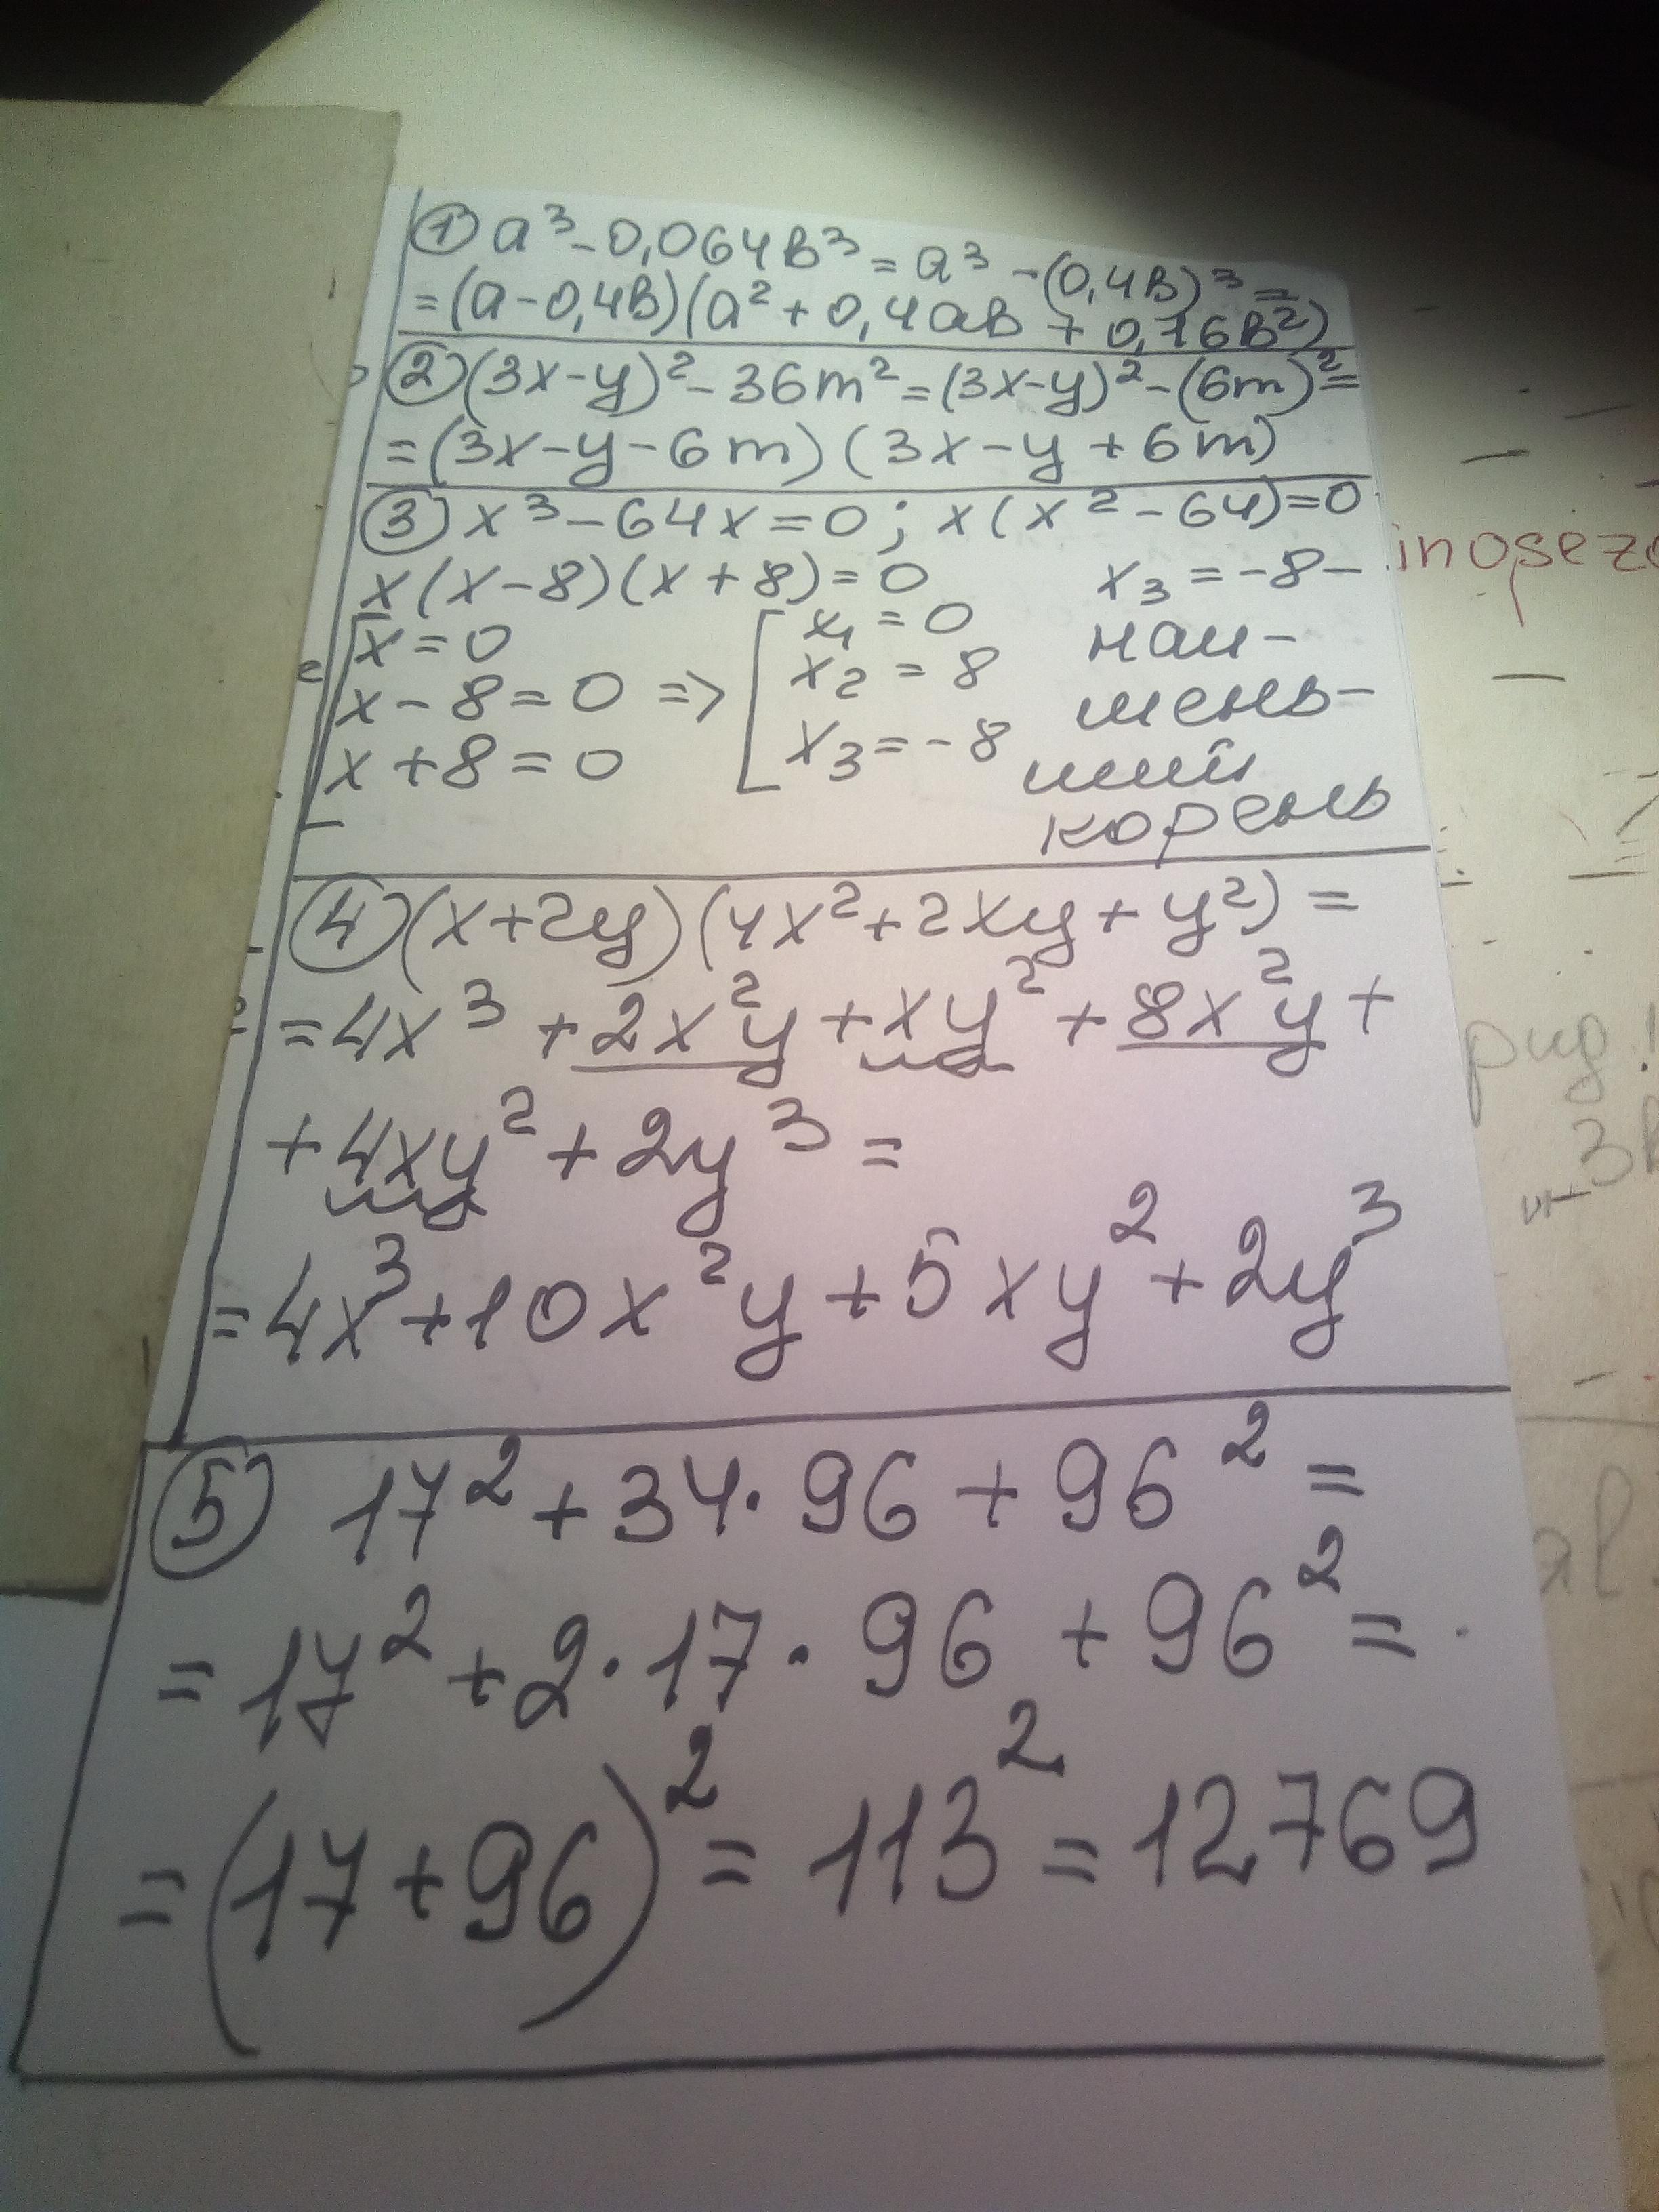 ① a³ - 0,064в³ = a³ - (0,4в)³ =
= (a - 0,4в)(a² + 0,4ав + 0,16в²)
② (3x - y)² - 36m² = (3x - y)² - (6m)² =
= (3x - y - 6m) (3x - y + 6m)
③ x³ - 64x = 0 ; x(x² - 64) = 0
x(x - 8)(x + 8) = 0
x = 0
x - 8 = 0 =>
x + 8 = 0
x₁ = 0
x₂ = 8
x₃ = -8
x₃ = -8 -
наи-
мень-
ший
корень
④ (x + 2y)(4x² + 2xy + y²) =
= 4x³ + 2x²y + xy² + 8x²y +
+ 4xy² + 2y³ =
= 4x³ + 10x²y + 5xy² + 2y³
⑤ 17² + 34 · 96 + 96² =
= 17² + 2 · 17 · 96 + 96² =
= (17 + 96)² = 113² = 12769